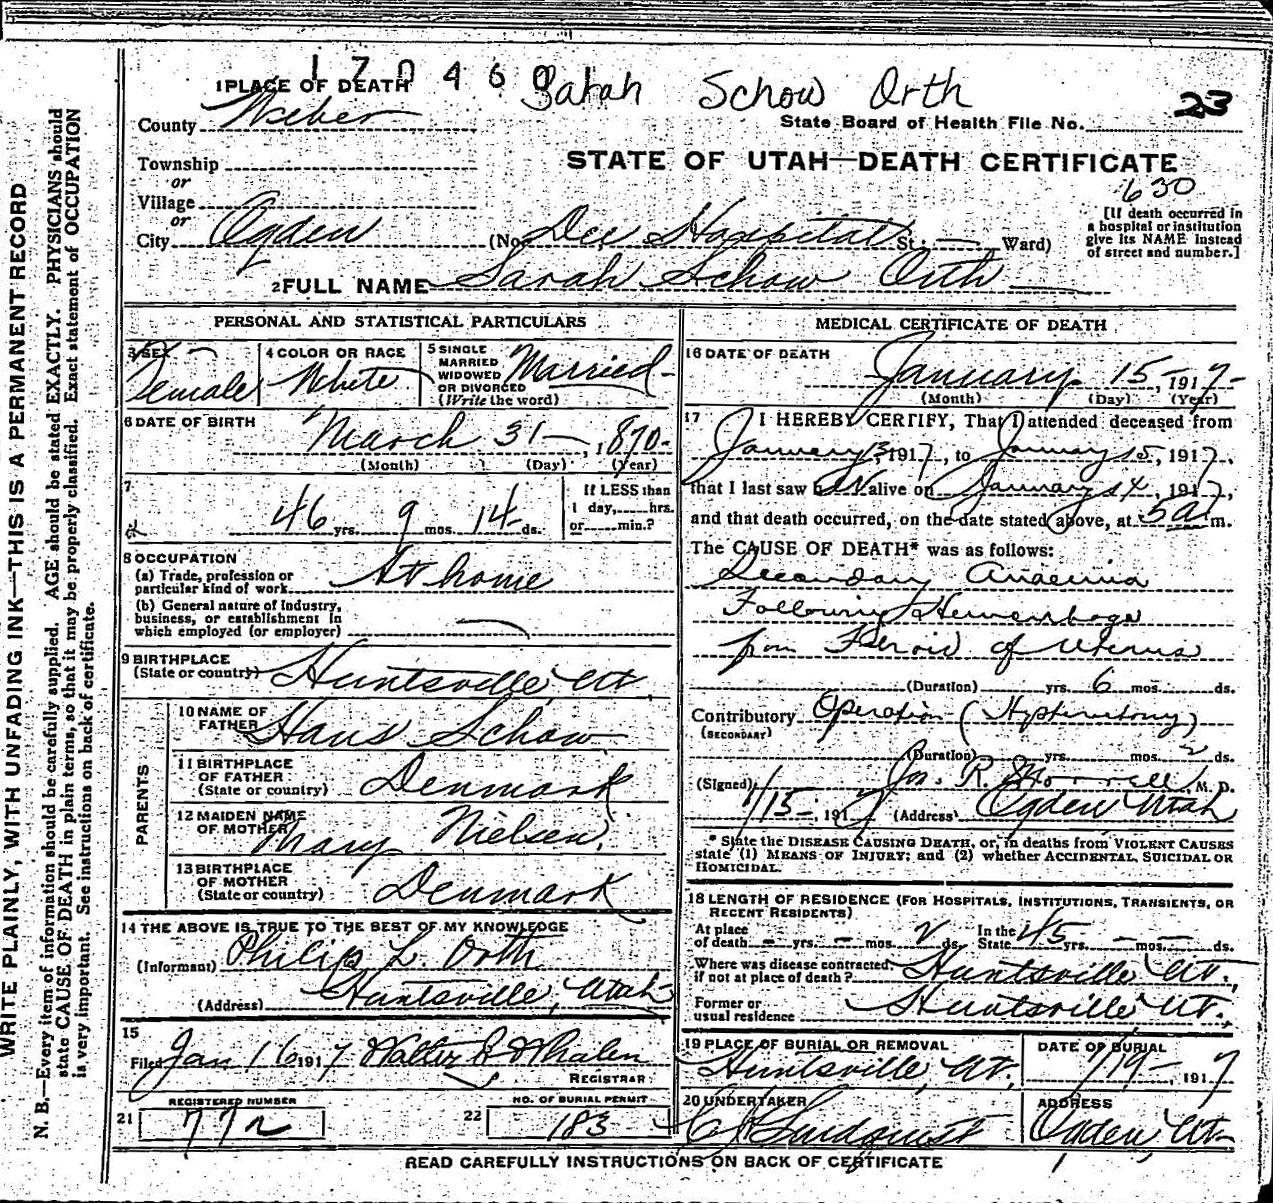 170460
Sarah Schow Orth
23
1 PLACE OF DEATH
County Weber
State Board of Health File No.
Township
or
Village
or
City Ogden
STATE OF UTAH—DEATH CERTIFICATE
630
(No. Dee Hospital St; — Ward)
[If death occurred in
a hospital or institution
give its NAME instead
of street and number.]
2 FULL NAME Sarah Schow Orth
PERSONAL AND STATISTICAL PARTICULARS
3 SEX
Female
4 COLOR OR RACE
White
5 SINGLE
MARRIED
WIDOWED
OR DIVORCED
(Write the word)
Married
6 DATE OF BIRTH
March 31—, 1870-
(Month) (Day) (Year)
7
46 yrs. 9 mos. 14 ds.
If LESS than
1 day, hrs.
or min.?
8 OCCUPATION
(a) Trade, profession or
particular kind of work At home
(b) General nature of Industry,
business, or establishment in
which employed (or employer)
9 BIRTHPLACE
(State or country) Huntsville Ut.
PARENTS
10 NAME OF
FATHER Hans Schow
11 BIRTHPLACE
OF FATHER
(State or country) Denmark
12 MAIDEN NAME
OF MOTHER Mary Nielsen
13 BIRTHPLACE
OF MOTHER
(State or country) Denmark
14 THE ABOVE IS TRUE TO THE BEST OF MY KNOWLEDGE
(Informant) Philip L. Orth
(Address) Huntsville, Utah
15
Filed Jan 16 1917 Walter J Whalen
REGISTRAR
REGISTERED NUMBER
21 772
NO. OF BURIAL PERMIT
22 183
MEDICAL CERTIFICATE OF DEATH
16 DATE OF DEATH
January 15-, 1917-
(Month) (Day) (Year)
17 I HEREBY CERTIFY, That I attended deceased from
January 13, 1917, to January 15, 1917,
that I last saw her alive on January 14, 1917,
and that death occurred, on the date stated above, at 5 a m.
The CAUSE OF DEATH* was as follows:
Secondary Anaemia
Following Hemorrhage
from Fibroid of Uterus
(Duration) yrs. 6 mos. ds.
Contributory Operation (Hysterectomy)
(SECONDARY)
(Duration) yrs. mos. 2 ds.
(Signed) Jos. R. Morrell, M. D.
1/15-, 1917 (Address) Ogden Utah
* State the DISEASE CAUSING DEATH, or, in deaths from VIOLENT CAUSES
state (1) MEANS OF INJURY; and (2) whether ACCIDENTAL, SUICIDAL OR
HOMICIDAL.
18 LENGTH OF RESIDENCE (FOR HOSPITALS, INSTITUTIONS, TRANSIENTS, OR
RECENT RESIDENTS)
At place
of death - yrs. - mos. 2 ds.
In the
State 45 yrs. - mos. - ds.
Where was disease contracted,
if not at place of death? Huntsville Ut.
Former or
usual residence Huntsville Ut.
19 PLACE OF BURIAL OR REMOVAL
Huntsville, Ut.
DATE OF BURIAL
1/19-, 1917
20 UNDERTAKER
C J Lindquist
ADDRESS
Ogden, Ut-
READ CAREFULLY INSTRUCTIONS ON BACK OF CERTIFICATE
WRITE PLAINLY, WITH UNFADING INK—THIS IS A PERMANENT RECORD
N. B.—Every item of information should be carefully supplied. AGE should be stated EXACTLY. PHYSICIANS should
state CAUSE OF DEATH in plain terms, so that it may be properly classified. Exact statement of OCCUPATION
is very important. See instructions on back of certificate.